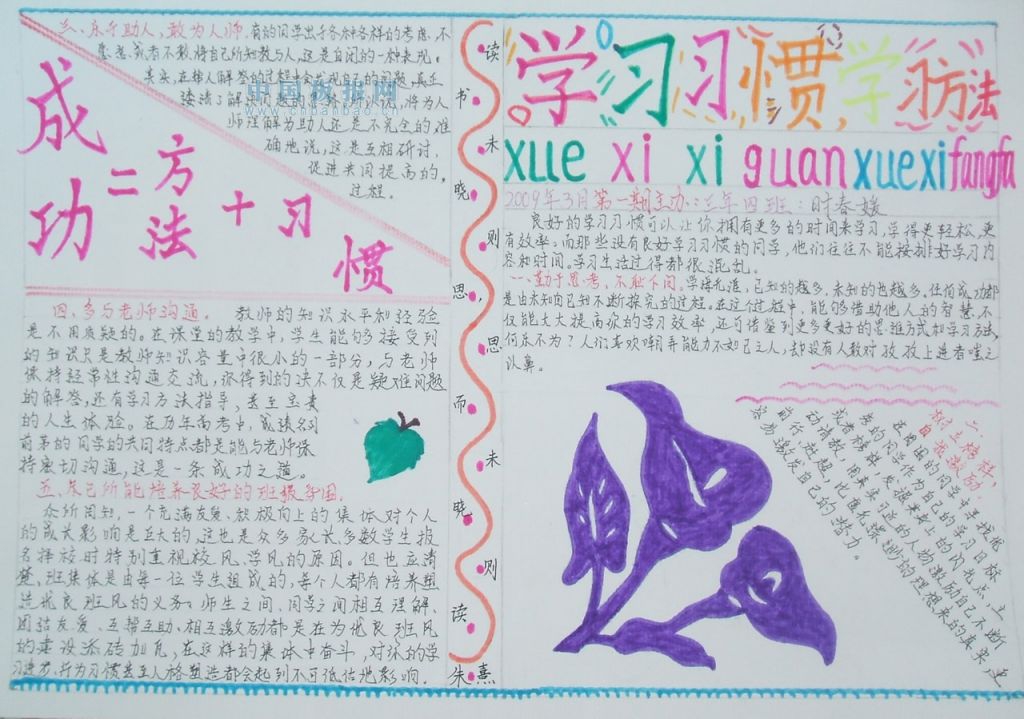 学习习惯学习方法
xue xi xi guan xue xi fangfa
2009年3月第一期主办:三年四班:时春媛
良好的学习习惯可以让你拥有更多的时间来学习,学得更轻松,更
有效率。而那些没有良好学习习惯的同学,他们往往不能按排好学习内
容和时间。学习生活过得都很混乱。
一、勤于思考、不耻下问。学海无涯,已知的越多,未知的也越多。任何成功都
是由未知向已知不断探究的过程。在这个过程中,能够借助他人的智慧,不
仅能大大提高你的学习效率,还可借鉴到更多更好的思维方式和学习方法,
何乐不为?人们喜欢嘲弄能力不如己之人,却没有人敢对孜孜上进者嗤之
以鼻。
二、树立榜样,
自我激励。
在周围的同学中寻找优
秀的同学作为自己的学习目标
或者榜样,发掘来新上的闪光点,立
动请教,用真实可遇的人物激励自己不断
前行进趣,比虚无缥缈的理想来的真实,更
容易激发自己的潜力。
读书未晓则思,思而未晓则读
朱熹
三、乐于助人,敢为人师。有的同学出于各种各样的考虑,不
愿意,或者不敢,将自己所知教与人,这是自闭的一种表现。
其实,在替人解答的过程中会发现自己的问题,真正
接洁了解决问题的思路。所以说,将为人
师理解为助人还是不完全的准
确地说,这是互相研讨,
促进共同提高的,
过程。
中国板报网
www.cnbanbao.cn
成功=方法+习惯
四、多与老师沟通。 教师的知识水平和经验
是不用质疑的。在课堂的教学中,学生能够接受到
的知识只是教师知识容量中很小的一部分,与老师
保持经常性沟通交流,你得到的决不仅是疑难问题
的解答,还有学习方法指导,甚至宝贵
的人生体验。在历年高考中,成绩名列
前茅的同学的共同特点都是能与老师保
持密切沟通,这是一条成功之道。
五、尽己所能培养良好的班级氛围。
众所周知,一个充满友爱、积极向上的集体对个人
的成长影响是巨大的,这也是众多家长、多数学生报
名择校时特别重视校风、学风的原因。但也应清
楚,班集体是由每一位学生组成的,每个人都有培养塑
造优良班风的义务。师生之间、同学之间相互理解、
团结友爱、互帮互助、相互激励都是在为优良班风
的建设添砖加瓦,在这样的集体中奋斗,对你的学
习进步,行为习惯甚至人格塑造都会起到不可低估地影响。